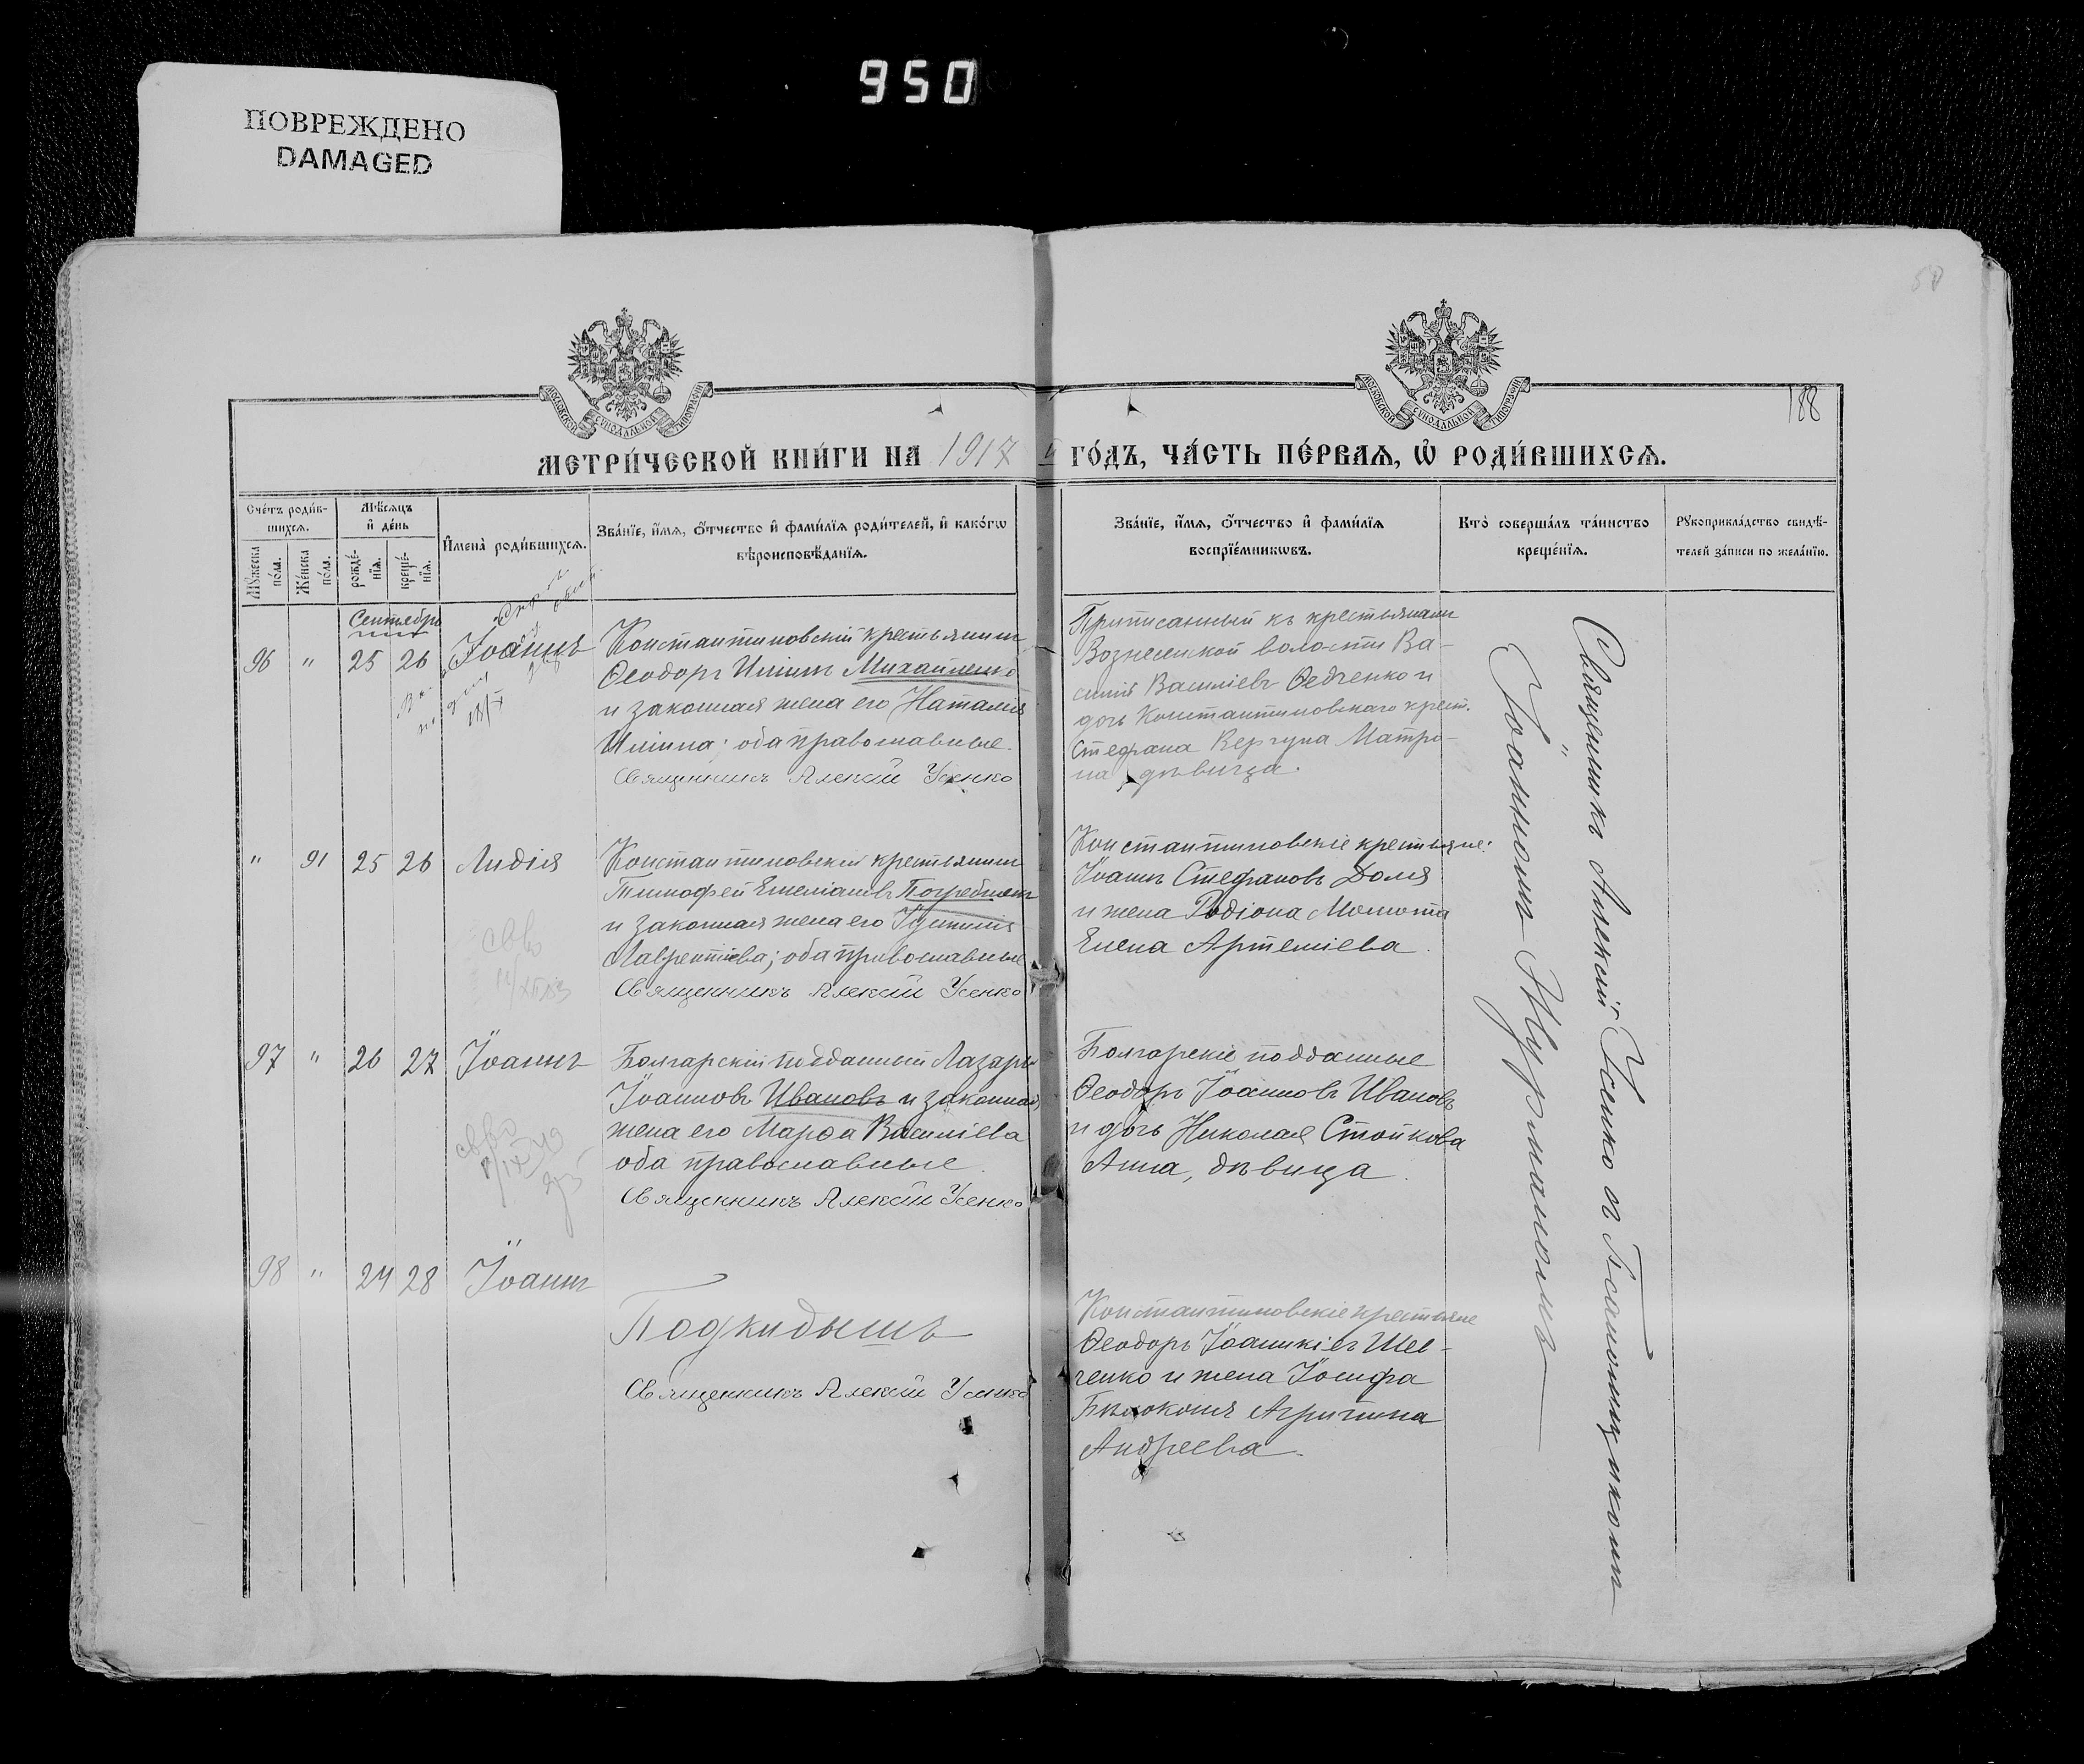 950
ПОВРЕЖДЕНО
DAMAGED
188
МЕТРИ́ЧЕСКОЙ КНИ́ГИ НА 1917 й ГО́ДЪ, ЧА́СТЬ ПЕ́РВАѦ, Ѽ РОДИ́ВШИХСѦ.
МОСКОВСКОЙ СѴНОДАЛЬНОЙ ТИПОГРАФІИ
МОСКОВСКОЙ СѴНОДАЛЬНОЙ ТИПОГРАФІИ
Сче́тъ роди́в-
шихсѧ.
Мꙋжеска по́ла.
Же́нска по́ла.
Мѣ́сѧцъ
и҆ де́нь
рожде́-
нїѧ.
креще́-
нїѧ.
И҆мена̀ роди́вшихсѧ.
Зва́нїе, и҆́мѧ, ѻ҆́тчество и҆ фами́лїѧ роди́телей, и҆ како́гѡ
вѣроисповѣ́данїѧ.
Зва́нїе, и҆́мѧ, ѻ҆́тчество и҆ фами́лїѧ
воспрїе́мникѡвъ.
Кто̀ соверша́лъ та́инство
креще́нїѧ.
Рꙋкоприкла́дство свидѣ́-
телей за́писи по жела́нїю.
Сентябрь
96 " 25 26 Іоаннъ
Константиновскій крестьянинъ
Ѳеодоръ Иліинъ Михайленко
и законная жена его Наталія
Иліина; оба православные.
Священникъ Алексій Усенко
Приписанный къ крестьянамъ
Вознесенской волости Ва-
силій Василіевъ Ѳедченко и
дочь Константиновскаго крест.
Стефана Вергуна Матро-
на дѣвица.
" 91 25 26 Лидія
Константиновскій крестьянинъ
Тимофей Емеліановъ Погребнякъ
и законная жена его Іустинія
Лаврентіева; оба православные
Священникъ Алексій Усенко
Константиновскіе крестьяне:
Іоаннъ Стефановъ Доля
и жена Родіона Момота
Елена Артеміева.
97 " 26 27 Іоаннъ
Болгарскій подданный Лазарь
Іоанновъ Ивановъ и законная
жена его Марѳа Василіева
оба православные.
Священникъ Алексій Усенко
Болгарскіе подданные
Ѳеодоръ Іоанновъ Ивановъ
и дочь Николая Стойкова
Анна, дѣвица.
98 " 24 28 Іоаннъ
Подкидышъ
Священникъ Алексій Усенко
Константиновскіе крестьяне
Ѳеодоръ Іоанникіевъ Шев-
ченко и жена Іосифа
Бѣлоконя Агрипина
Андреева.
Священникъ Алексій Усенко съ Псаломщикомъ
Іоанномъ Журманомъ